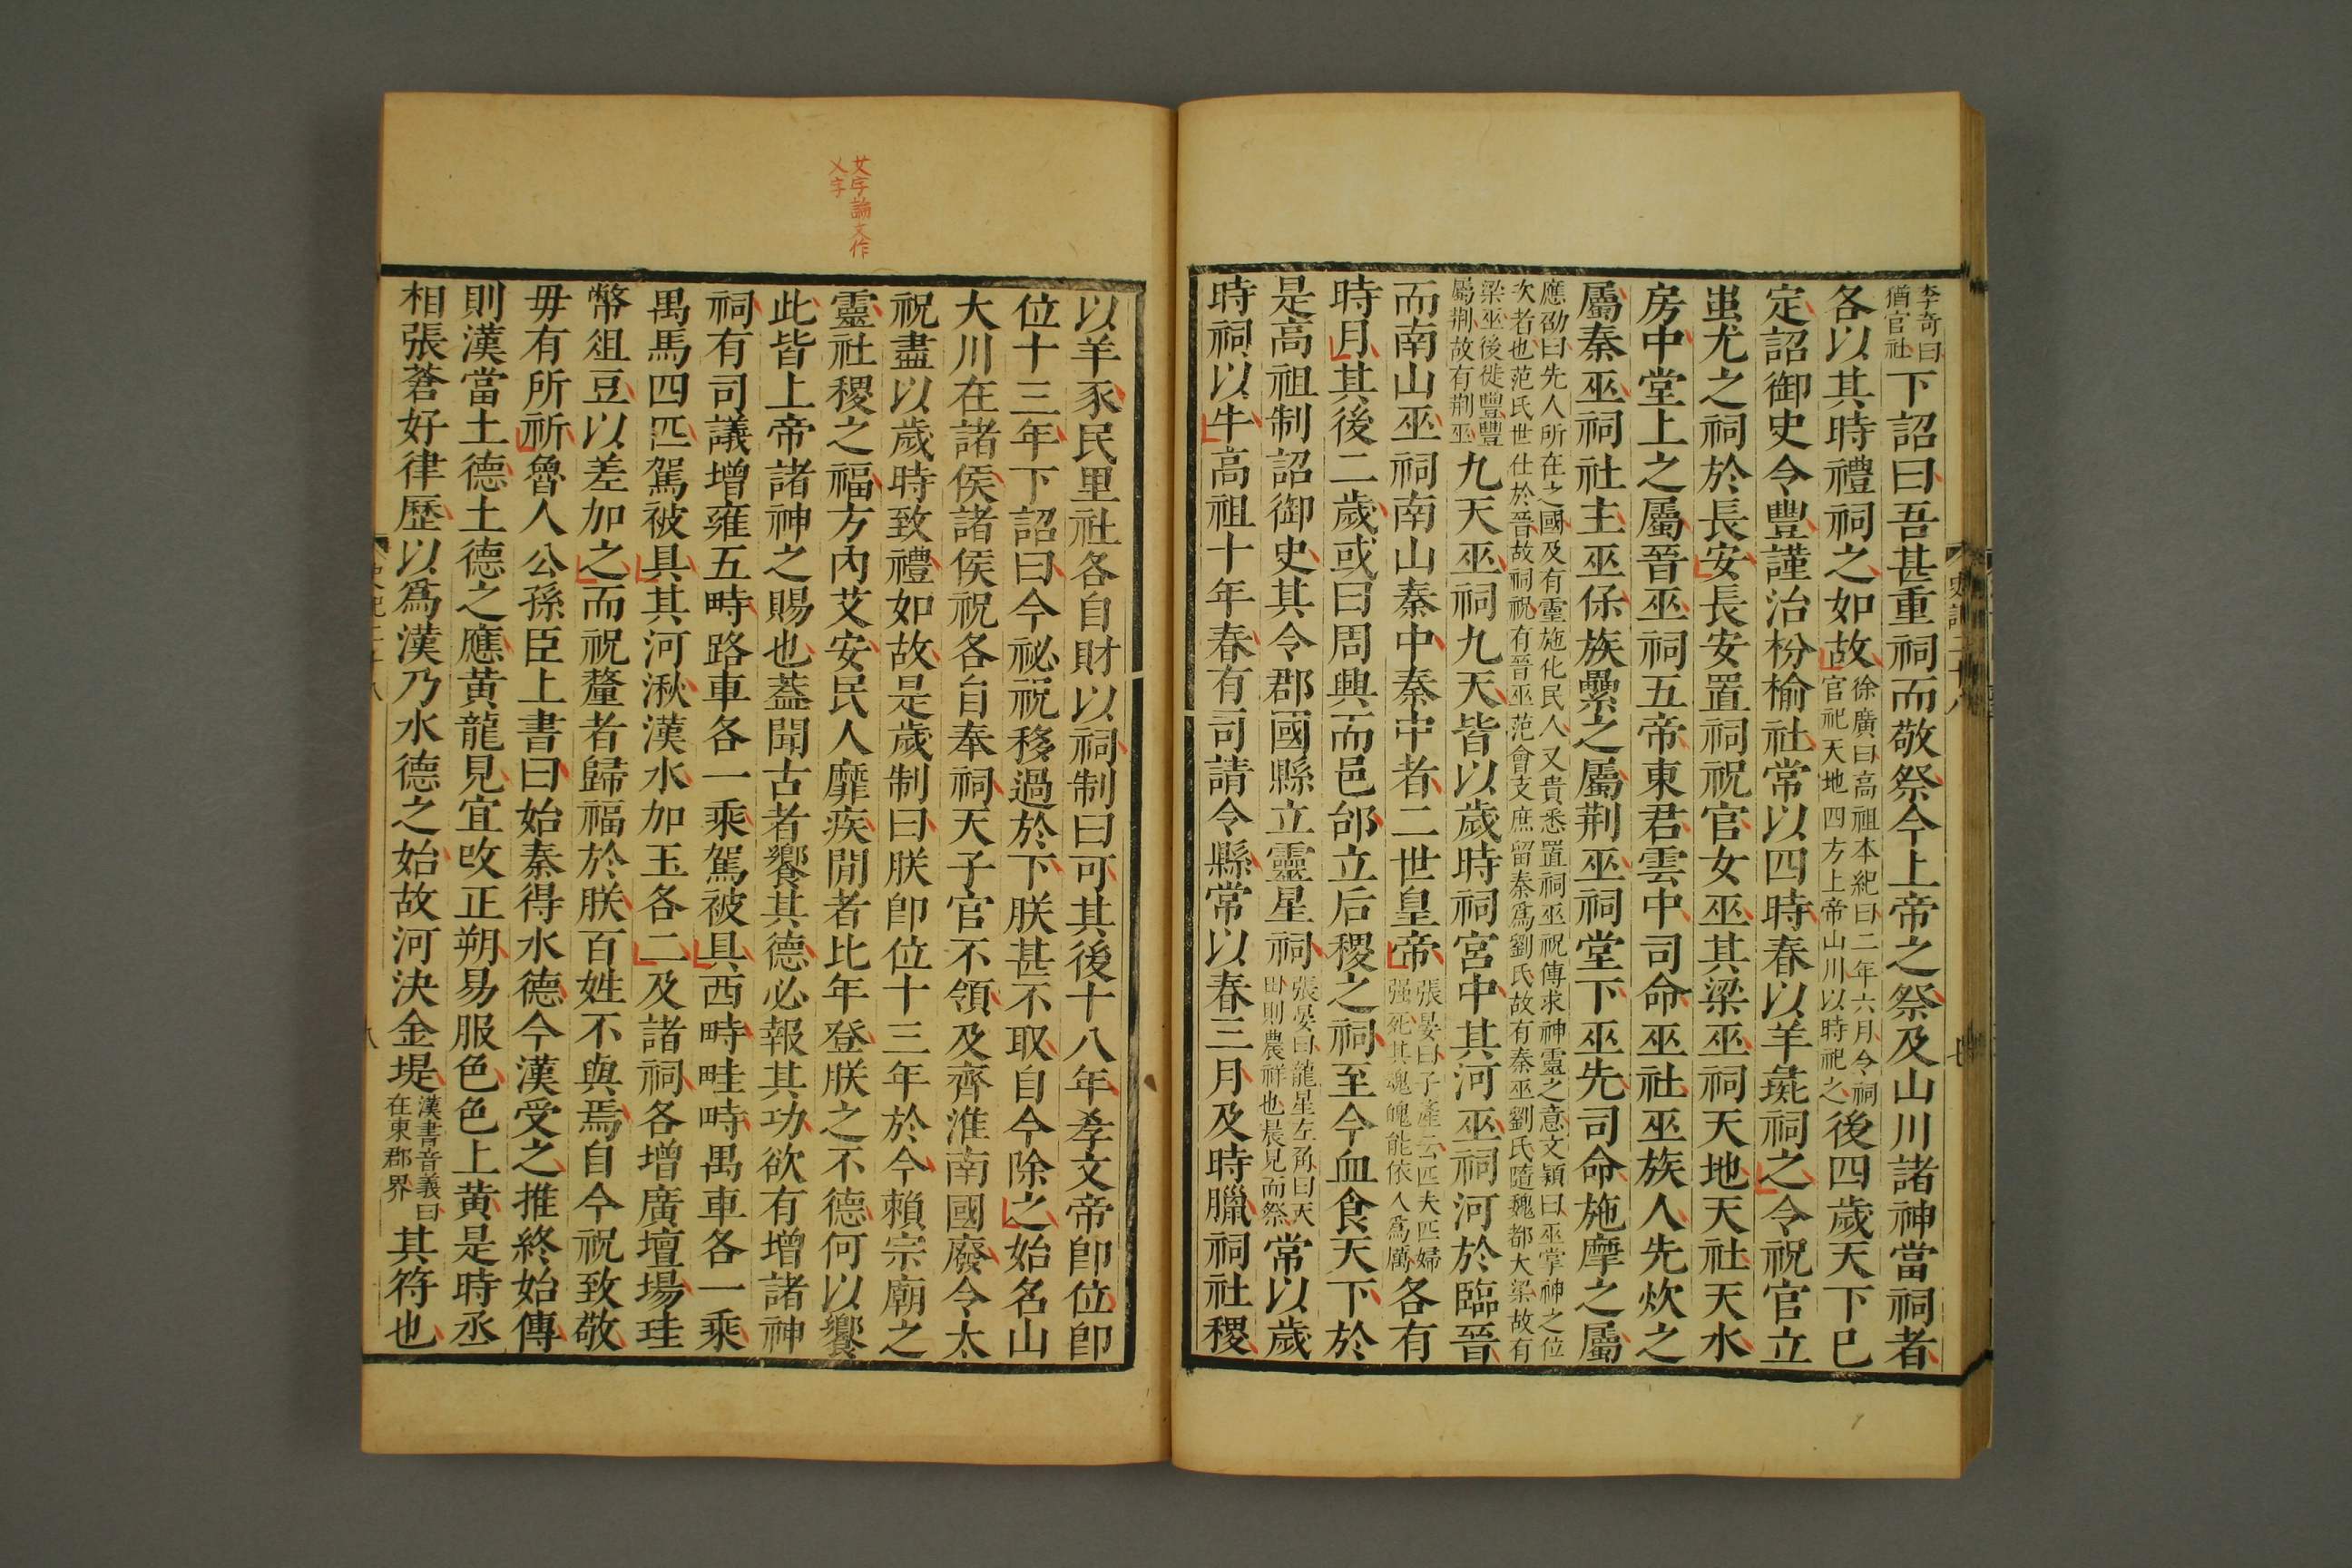 李奇曰猶官社下詔曰吾甚重祠而敬祭今上帝之祭及山川諸神當祠者
各以其時禮祠之如故徐廣曰高祖本紀曰二年六月令祠官祀天地四方上帝山川以時祀之後四歲天下已
定詔御史令豐謹治枌榆社常以四時春以羊彘祠之令祝官立
蚩尤之祠於長安長安置祠祝官女巫其梁巫祠天地天社天水
房中堂上之屬晉巫祠五帝東君雲中司命巫社巫族人先炊之
屬秦巫祠社主巫保族纍之屬荆巫祠堂下巫先司命施糜之屬
應劭曰先人所在之國及有靈施化民人又貴悉置祠巫祝傳求神靈之意文穎曰巫掌神之位
次者也范氏世仕於晉故祠祝有晉巫范會支庶留秦爲劉氏故有秦巫劉氏隨魏都大梁故有
梁巫後徙豐豐屬荆故有荆巫九天巫祠九天皆以歲時祠宮中其河巫祠河於臨晉
而南山巫祠南山秦中秦中者二世皇帝張晏曰子產云匹夫匹婦强死其魂魄能依人爲厲各有
時月其後二歲或曰周興而邑邰立后稷之祠至今血食天下於
是高祖制詔御史其令郡國縣立靈星祠張晏曰龍星左角曰天田則農祥也晨見而祭常以歲
時祠以牛高祖十年春有司請令縣常以春三月及時臘祠社稷
史記二十八
七
艾字論文作
乂字
以羊豕民里社各自財以祠制曰可其後十八年孝文帝卽位卽
位十三年下詔曰今祕祝移過於下朕甚不取自今除之始名山
大川在諸侯諸侯祝各自奉祠天子官不領及齊淮南國廢令太
祝盡以歲時致禮如故是歲制曰朕卽位十三年於今賴宗廟之
靈社稷之福方內艾安民人靡疾間者比年登朕之不德何以饗
此皆上帝諸神之賜也蓋聞古者饗其德必報其功欲有增諸神
祠有司議增雍五畤路車各一乘駕被具西畤畦畤禺車各一乘
禺馬四匹駕被具其河湫漢水加玉各二及諸祠各增廣壇場珪
幣俎豆以差加之而祝釐者歸福於朕百姓不與焉自今祝致敬
毋有所祈魯人公孫臣上書曰始秦得水德今漢受之推終始傳
則漢當土德土德之應黃龍見宜改正朔易服色色上黃是時丞
相張蒼好律歷以爲漢乃水德之始故河決金堤漢書音義曰在東郡界其符也
史記二十八
八